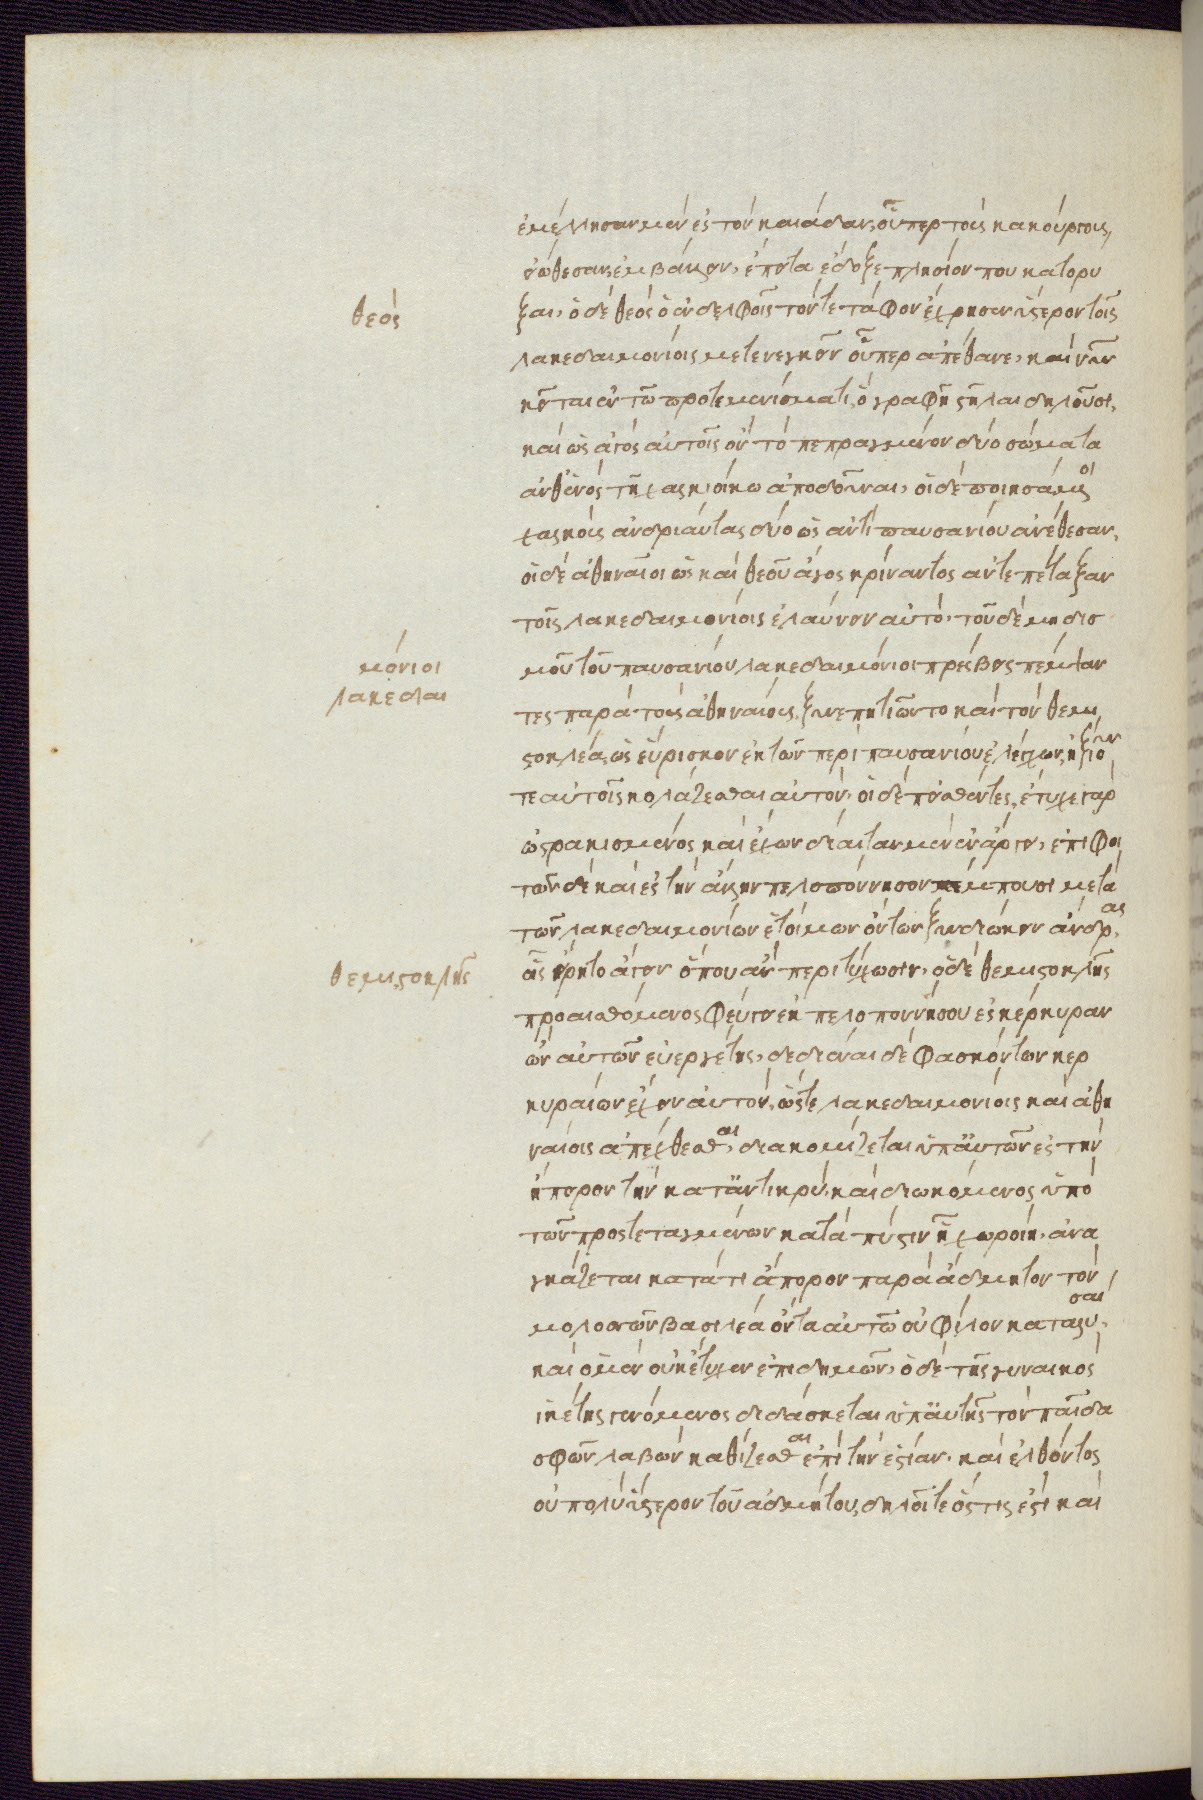 ἐμέλλησαν μὲν ἐς τὸν καιάδαν, οὗπερ τοὺς κακούργους,
εἰώθεσαν, ἐμβάλλειν, ἔπειτα ἔδοξε πλησίον που κατορύ
ξαι, ὁ δὲ θεὸς ὁ ἐν δελφοῖς τόν τε τάφον ἔχρησεν ὕστερον τοῖς
θεὸς
λακεδαιμονίοις μετενεγκεῖν οὗπερ ἀπέθανε, καὶ νῦν
κεῖται ἐν τῶ προτεμενίσματι, ὃ γραφῆ στῆλαι δηλοῦσι,
καὶ ὡς ἄγος αὐτοῖς ὂν τὸ πεπραγμένον δύο σώματα
ἀνθ' ἑνὸς τῆ χαλκιοίκω ἀποδοῦναι, οἱ δὲ ποιησάμενοι
χαλκοῦς ἀνδριάντας δύο ὡς ἀντὶ παυσανίου ἀνέθεσαν,
οἱ δὲ ἀθηναῖοι ὡς καὶ θεοῦ ἄγος κρίναντος ἀντεπέταξαν
τοῖς λακεδαιμονίοις ἐλαύνειν αὐτό, τοῦ δὲ μηδισ
μοῦ τοῦ παυσανίου λακεδαιμόνιοι πρέσβεις πέμψαν
μόνιοι
λακεδαι
τες παρὰ τοὺς ἀθηναίους, ξυνεπητιῶντο καὶ τὸν θεμι
στοκλέα, ὡς εὕρισκον ἐκ τῶν περὶ παυσανίου ἐλέγχων, ἠξίουν
τε αὐτοῖς κολάζεσθαι αὐτόν, οἱ δὲ πεισθέντες, ἔτυχε γὰρ
ὠστρακισμένος καὶ ἔχων δίαιταν μὲν ἐν ἄργει, ἐπιφοι
τῶν δὲ καὶ ἐς τὴν ἄλλην πελοπόννησον πέμπουσι μετὰ
τῶν λακεδαιμονίων ἑτοίμων ὄντων ξυνδιώκειν ἄνδρας
οἷς εἴρητο ἄγειν ὅπου ἂν περιτύχωσιν, ὁ δὲ θεμιστοκλῆς
θεμιστοκλῆς
προαισθόμενος φεύγει ἐκ πελοποννήσου ἐς κέρκυραν
ὢν αὐτῶν εὐεργέτης, δεδιέναι δὲ φασκόντων κερ
κυραίων ἔχειν αὐτόν, ὥστε λακεδαιμονίοις καὶ ἀθη
ναίοις ἀπέχθεσθαι, διακομίζεται ὑπ' αὐτῶν ἐς τὴν
ἤπειρον τὴν καταντικρύ, καὶ διωκόμενος ὑπὸ
τῶν προστεταγμένων κατὰ πύστιν ἧ χωροίη, ἀνα
γκάζεται κατά τι ἄπορον παρὰ ἄδμητον τὸν
μολοσσῶν βασιλέα ὄντα αὐτῶ οὐ φίλον καταλῦσαι,
καὶ ὁ μὲν οὐκ ἔτυχεν ἐπιδημῶν, ὁ δὲ τῆς γυναικὸς
ἱκέτης γενόμενος διδάσκεται ὑπ' αὐτῆς τὸν παῖδα
σφῶν λαβὼν καθίζεσθαι ἐπὶ τὴν ἑστίαν, καὶ ἐλθόντος
οὐ πολὺ ὕστερον τοῦ ἀδμήτου, δηλοῖ τε ὅς τις ἐστὶ καὶ